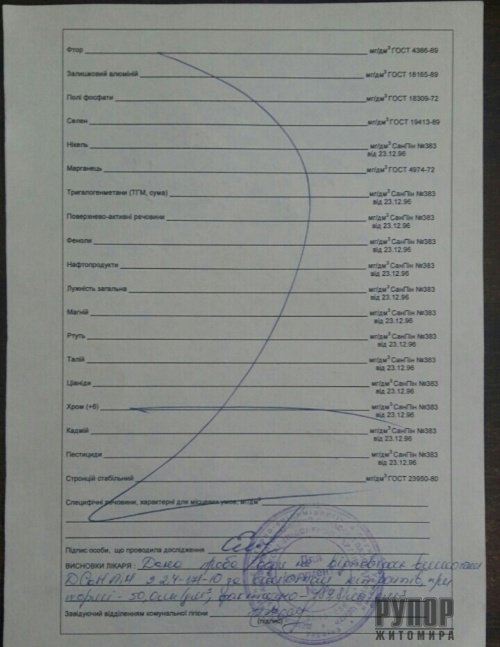 Фтор мг/дм³ ГОСТ 4386-89
Залишковий алюміній мг/дм³ ГОСТ 18165-89
Полі фосфати мг/дм³ ГОСТ 18309-72
Селен мг/дм³ ГОСТ 19413-89
Нікель мг/дм³ СанПін №383
від 23.12.96
Марганець мг/дм³ ГОСТ 4974-72
Тригалогенметани (ТГМ, сума) мг/дм³ СанПін №383
від 23.12.96
Поверхнево-активні речовини мг/дм³ СанПін №383
від 23.12.96
Феноли мг/дм³ СанПін №383
від 23.12.96
Нафтопродукти мг/дм³ СанПін №383
від 23.12.96
Лужність загальна мг/дм³ СанПін №383
від 23.12.96
Магній мг/дм³ СанПін №383
від 23.12.96
Ртуть мг/дм³ СанПін №383
від 23.12.96
Талій мг/дм³ СанПін №383
від 23.12.96
Ціаніди мг/дм³ СанПін №383
від 23.12.96
Хром (+6) мг/дм³ СанПін №383
від 23.12.96
Кадмій мг/дм³ СанПін №383
від 23.12.96
Пестициди мг/дм³ СанПін №383
від 23.12.96
Стронцій стабільний мг/дм³ ГОСТ 23950-80
Специфічні речовини, характерні для місцевих умов, мг/дм³
Підпис особи, що проводила дослідження
ВИСНОВКИ ЛІКАРЯ: Дана проба води не відповідає вимогам
ДСанПіН 2.2.4-171-10 за вмістом нітратів, при
нормі - 50,0 мг/дм³, фактично -
Завідувачий відділенням комунальної гігієни
(підпис)
РУПОР
ЖИТОМИРА